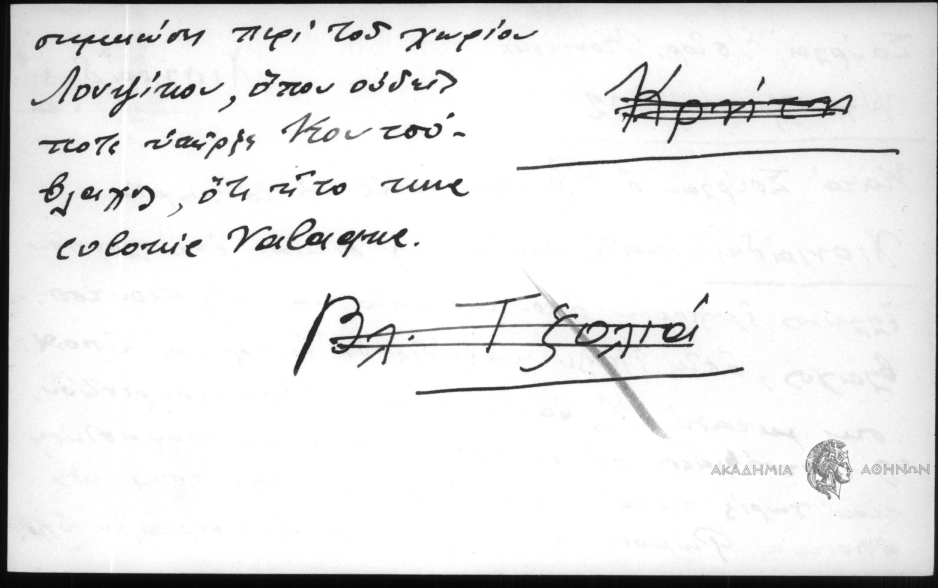 σημείωση περὶ τοῦ χωρίου
Λουψίκου, ὅπου οὐδείς
ποτε ὑπῆρξε Κουτσό-
βλαχος, ὅτι ἦτο une
colonie Valaque.
Κρήτη
Βλ. Τζολιαί
ΑΚΑΔΗΜΙΑ ΑΘΗΝΩΝ